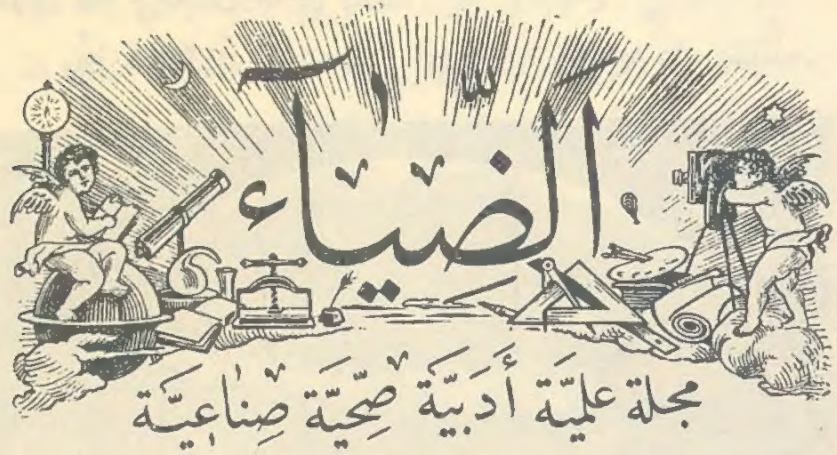 الضِّيَآء
مجلة علميَّة أَدَبيَّة صِحِّيَّة صِناعيَّة